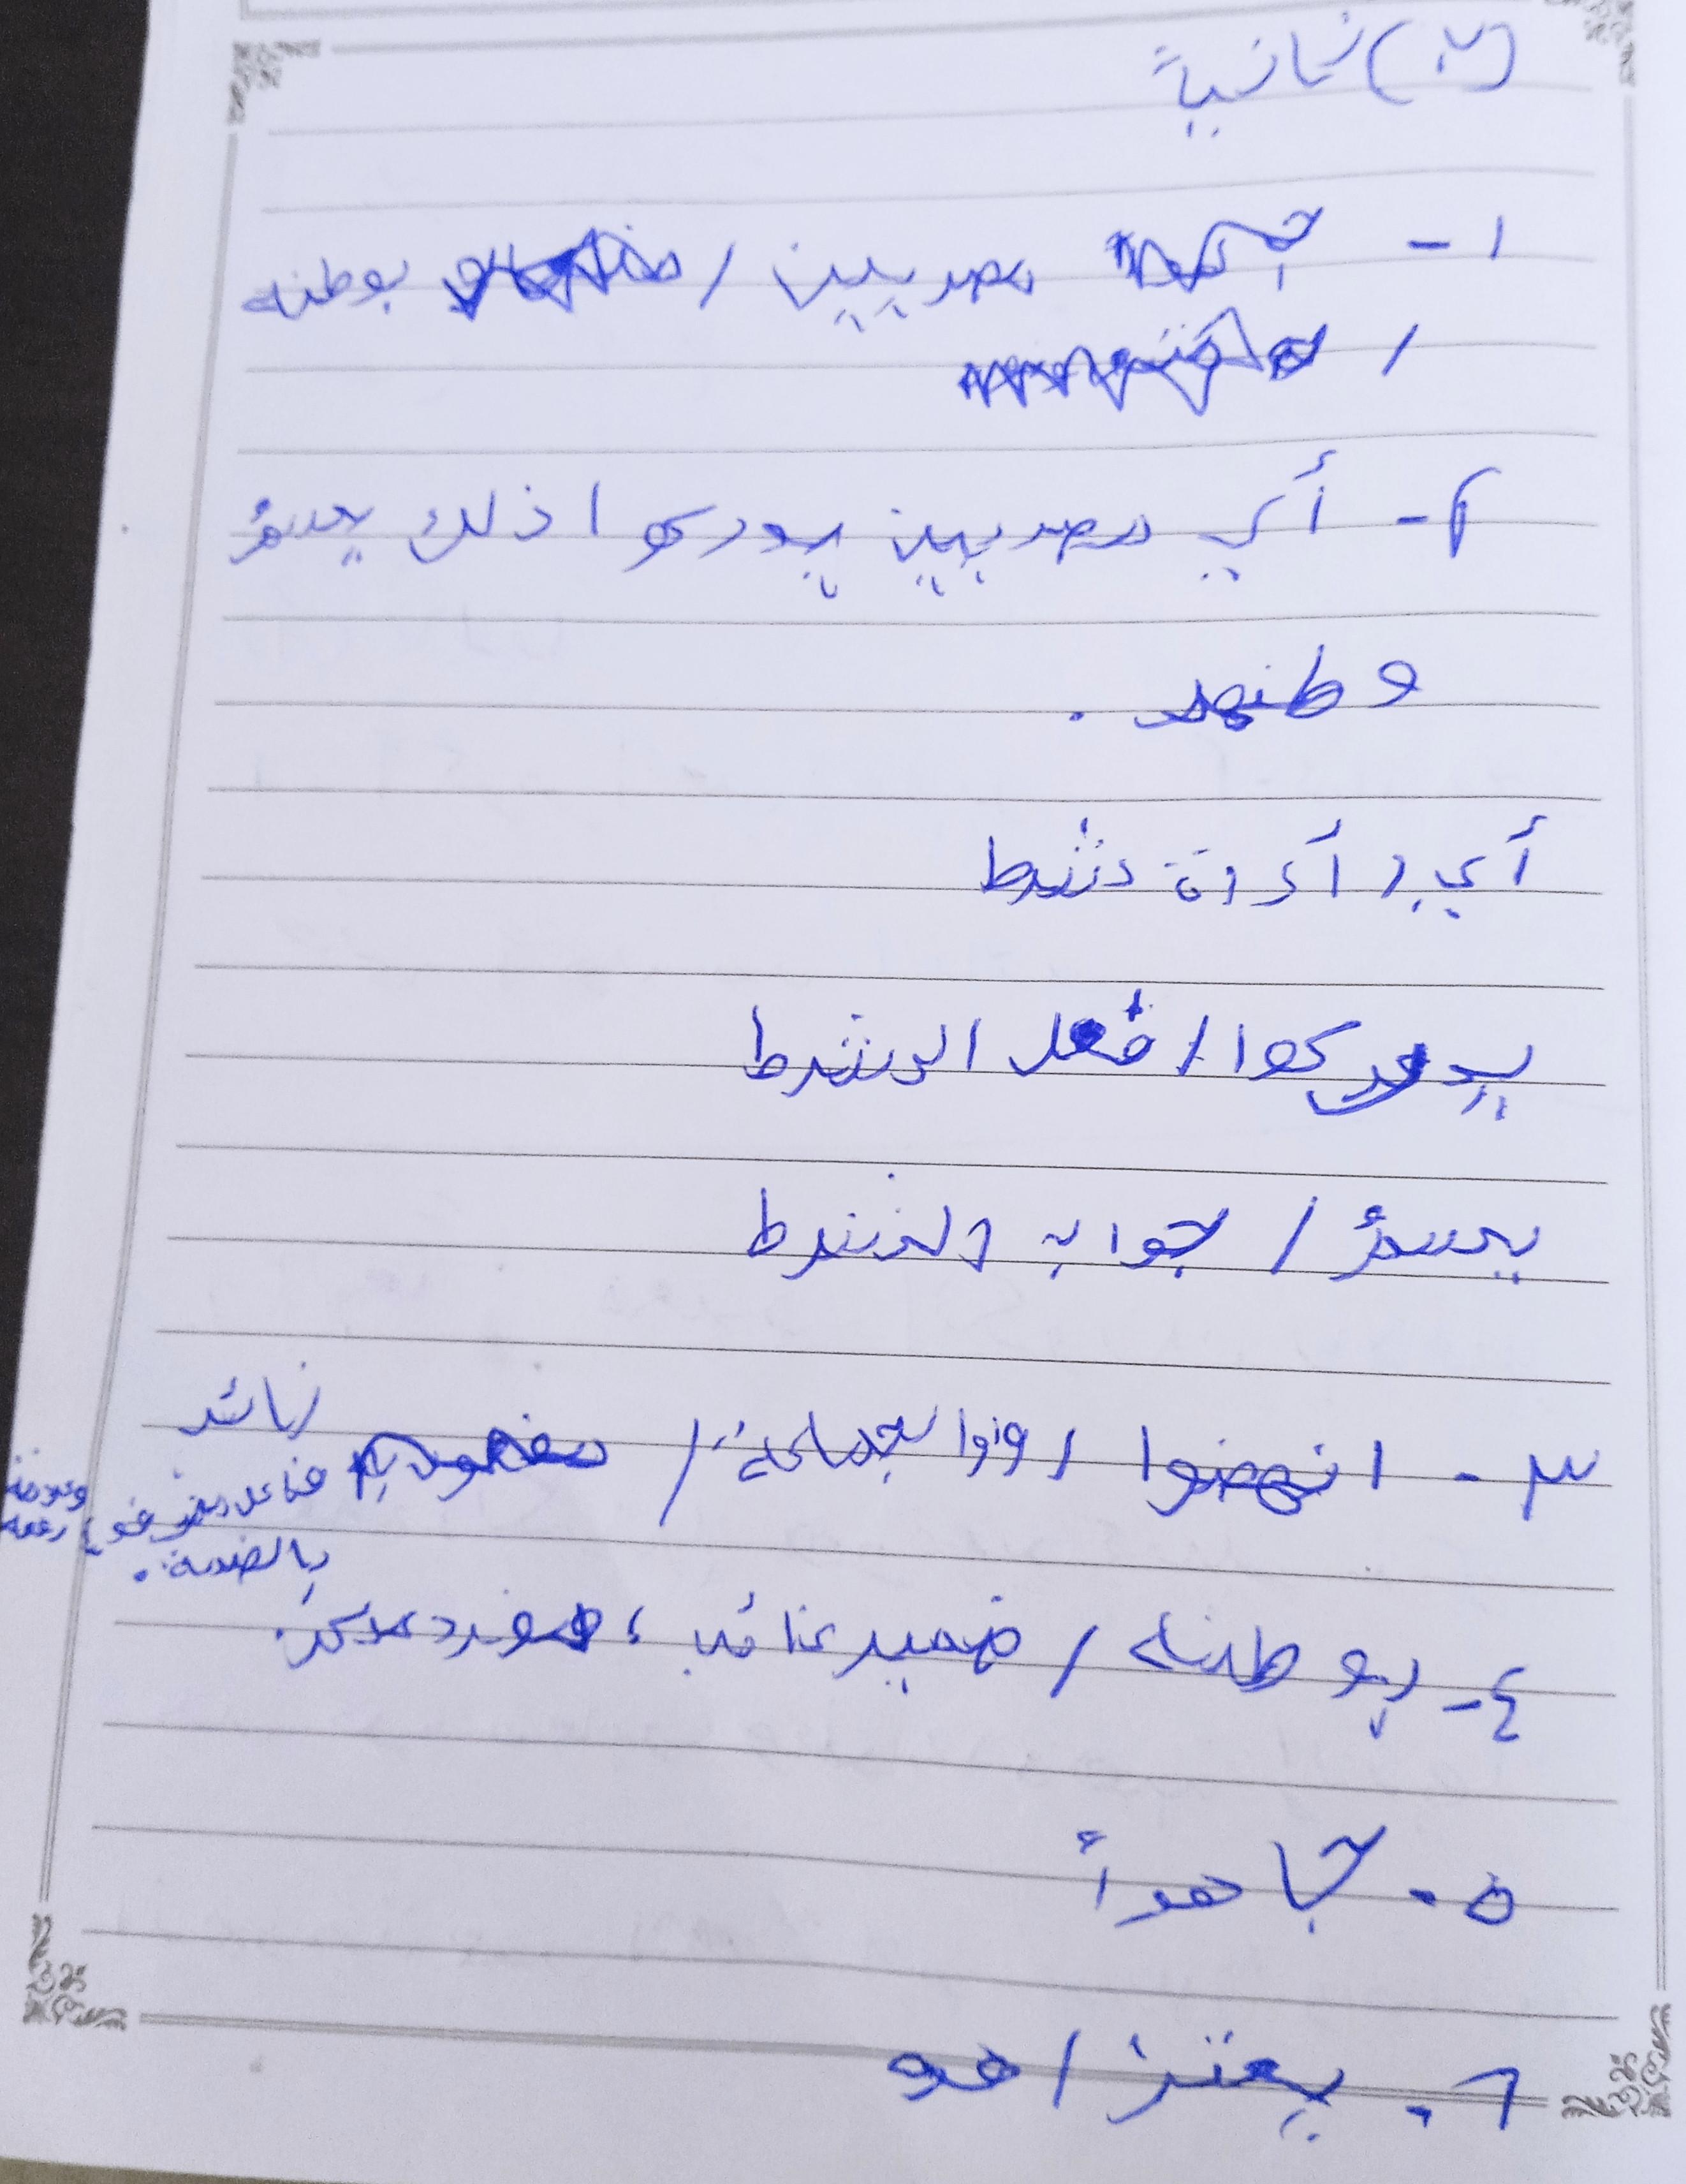 (ب) ثانية
١- مصريين / بوطنه
/
٢- أي مصريين يدركوا ذلك يسمُ
وطنهم.
أي / أداة شرط
يدركوا / فعل الشرط
يسمُ / جواب الشرط
٣- انهضوا / واو الجماعة /
فاعل مرفوع وعلامة رفعه
بالضمة.
٤- بوطنه / ضمير غائب، مفرد مذكر.
٥-
٦- يعتز / هو